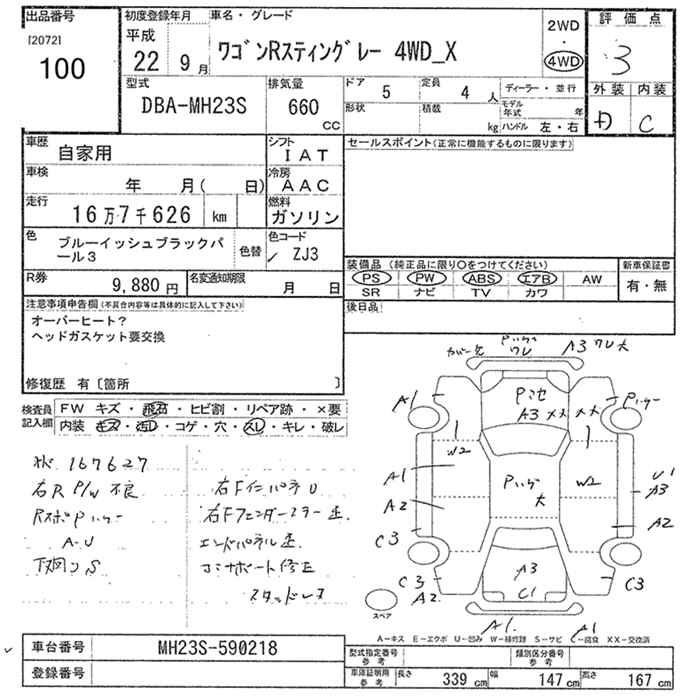 出品番号
[2072]
100
初度登録年月
平成
22 9月
車名・グレード
ワゴンRスティングレー 4WD_X
2WD
・
4WD
評価点
3
外装 内装
D C
型式
DBA-MH23S
排気量
660
CC
ドア 5
定員 4 人
形状
積載 kg
ディーラー・並行
モデル年式 年
ハンドル 左・右
車歴
自家用
シフト
IAT
車検
年 月( 日)
冷房
AAC
走行
16万7千626 km
燃料
ガソリン
色
ブルーイッシュブラックパール3
色替
色コード
ZJ3
R券
9,880円
名変通知期限
月 日
セールスポイント(正常に機能するものに限ります)
装備品(純正品に限り○をつけてください)
PS PW ABS エアB AW
SR ナビ TV カワ
新車保証書
有・無
後日品
注意事項申告欄(不具合内容等は具体的に記入して下さい)
オーバーヒート?
ヘッドガスケット要交換
修復歴 有〔箇所 〕
検査員記入欄
FW キズ・飛石・ヒビ割・リペア跡・×要
内装 キズ・汚レ・コゲ・穴・スレ・キレ・破レ
状 167627
右R P/W 不良
A-U
下廻りS
右FインパネU
エンドパネル
コアサポート修正
スタッドレス
A3 ワレ大
A1
A3 XX XX
W2
W2
A1
A2
U1
A3
A2
C3
C3
A2
A3
C1
C3
A1
スペア
A-キズ E-エクボ U-凹み W-補修跡 S-サビ C-腐食 XX-交換済
車台番号
MH23S-590218
登録番号
型式指定番号
参考
類別区分番号
参考
車庫証明用
参考
長さ 339 cm
幅 147 cm
高さ 167 cm